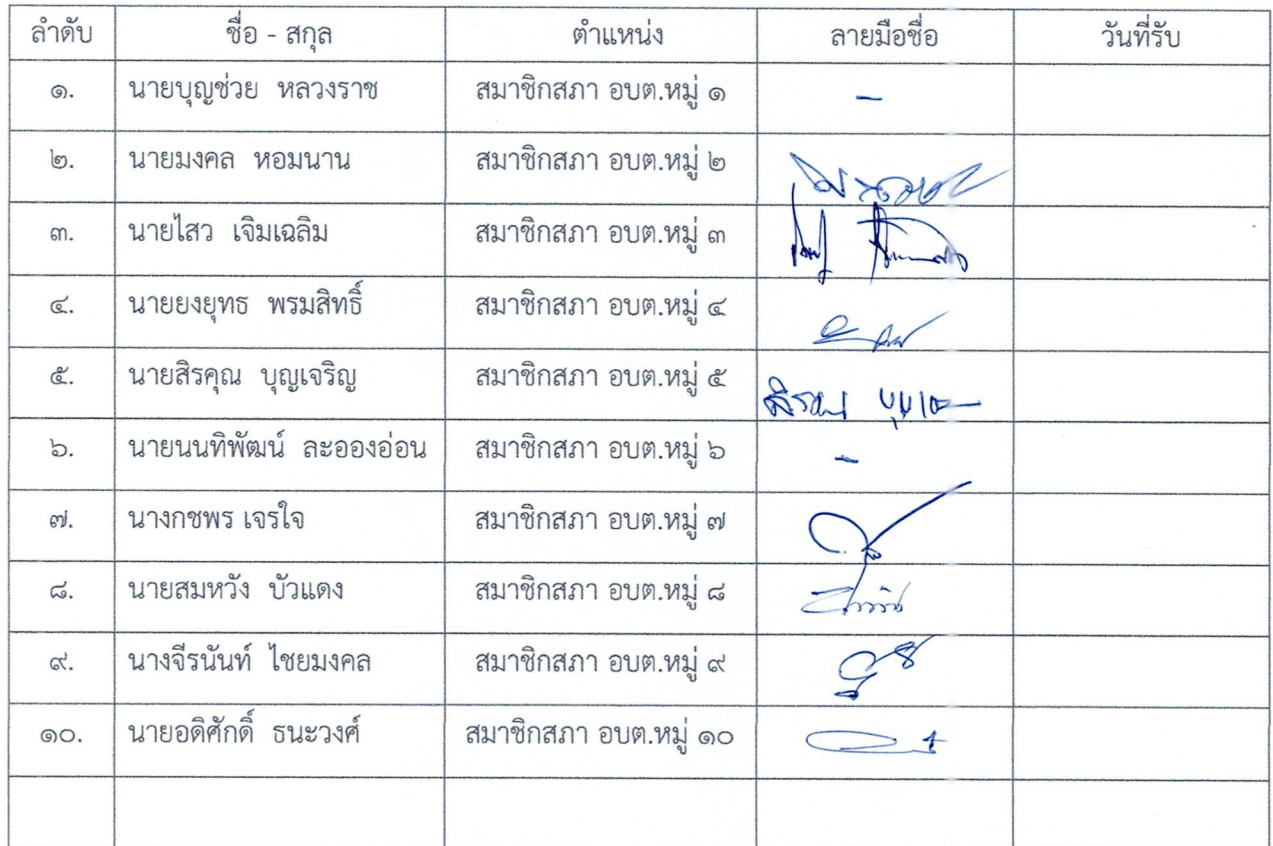 ลำดับ ชื่อ - สกุล ตำแหน่ง ลายมือชื่อ วันที่รับ
๑. นายบุญช่วย หลวงราช สมาชิกสภา อบต.หมู่ ๑ -
๒. นายมงคล หอมนาน สมาชิกสภา อบต.หมู่ ๒
๓. นายไสว เจิมเฉลิม สมาชิกสภา อบต.หมู่ ๓
๔. นายยงยุทธ พรมสิทธิ์ สมาชิกสภา อบต.หมู่ ๔
๕. นายสิรคุณ บุญเจริญ สมาชิกสภา อบต.หมู่ ๕
๖. นายนนทิพัฒน์ ละอองอ่อน สมาชิกสภา อบต.หมู่ ๖ -
๗. นางกชพร เจรใจ สมาชิกสภา อบต.หมู่ ๗
๘. นายสมหวัง บัวแดง สมาชิกสภา อบต.หมู่ ๘
๙. นางจีรนันท์ ไชยมงคล สมาชิกสภา อบต.หมู่ ๙
๑๐. นายอดิศักดิ์ ธนะวงศ์ สมาชิกสภา อบต.หมู่ ๑๐